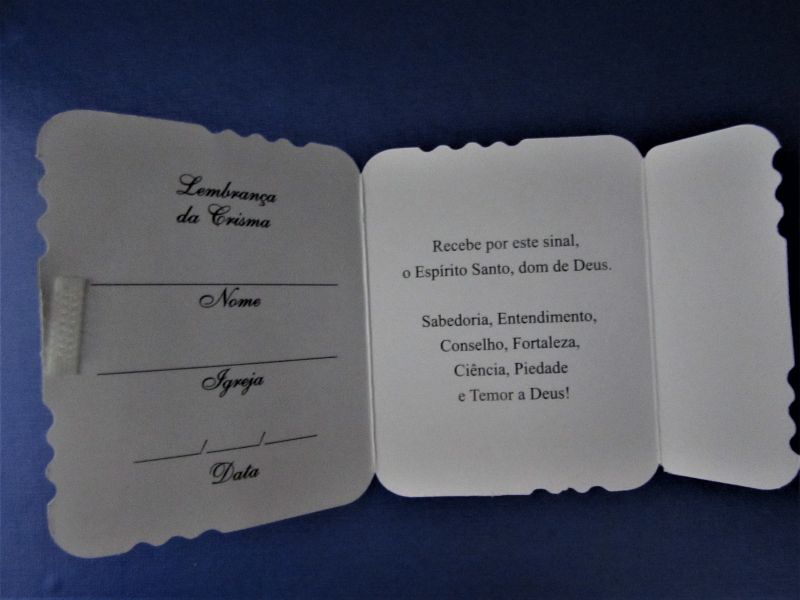 Lembrança
da Crisma
Nome
Igreja
___/___/___
Data
Recebe por este sinal,
o Espírito Santo, dom de Deus.
Sabedoria, Entendimento,
Conselho, Fortaleza,
Ciência, Piedade
e Temor a Deus!